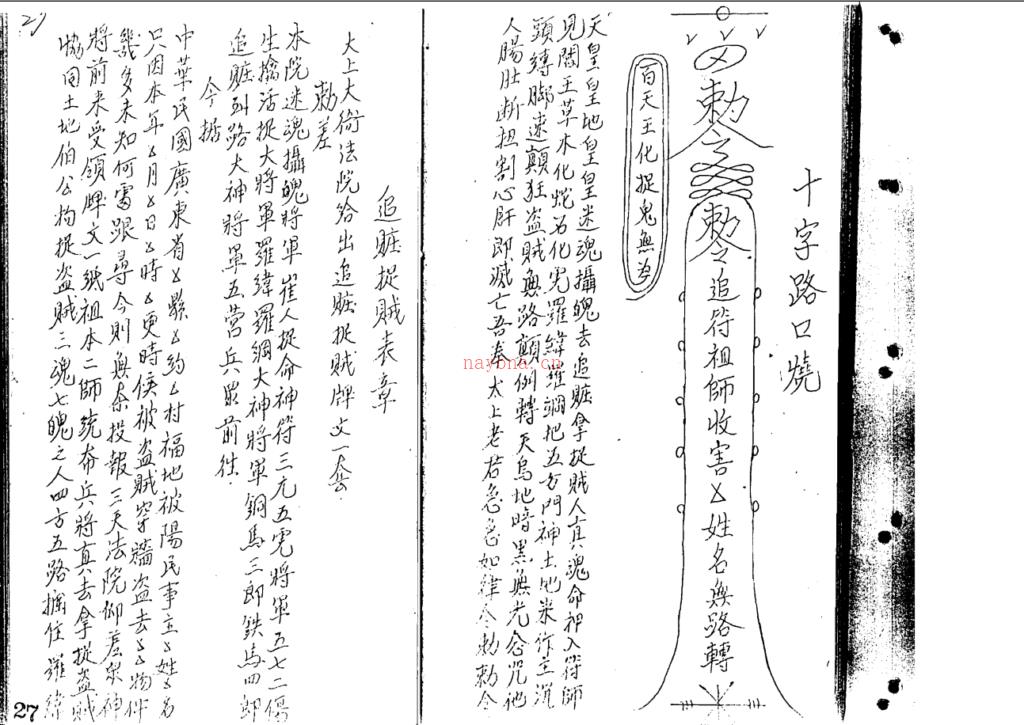 十字路口燒
勅令
勅令追符祖師收害㐅姓名無路轉
百天王化捉鬼無為
天皇皇地皇皇迷魂攝魄去追賍拿捉賊人真魂命押入符師
見閻王草木化蛇石化虎羅緯羅綱把五方門神土地來作主沉
頭縛脚速顛狂盜賊無路顛例轉天烏地暗黑無光念咒他
人腸肚断扭割心肝即滅亡吾奉太上老君急急如律令勅勅令
追賍捉賊表章
大上大倚法院給出追賍捉賊牌文一套
勅差
本院迷魂攝魄將軍崔人捉命神符三元五虎將軍五七二傷
生擒活捉大將軍羅緯羅綱大神將軍銅馬三郎鉄馬四郎
追賍到路大神將軍五营兵眾前往
今據
中華民國廣東省㐅縣㐅約㐅村福地被陽民事主㐅姓㐅名
只因本年㐅月㐅日㐅時㐅更時候被盜賊穿牆盜去㐅㐅物件
幾多未知何處跟尋今則無奈投報三天法院仰差眾神
將前来受領牌文一紙祖本二師統布兵將真去拿捉盜賊
協同土地伯公拘捉盜賊三魂七魄之人四方五路攔住羅緯
27
naybna.cn